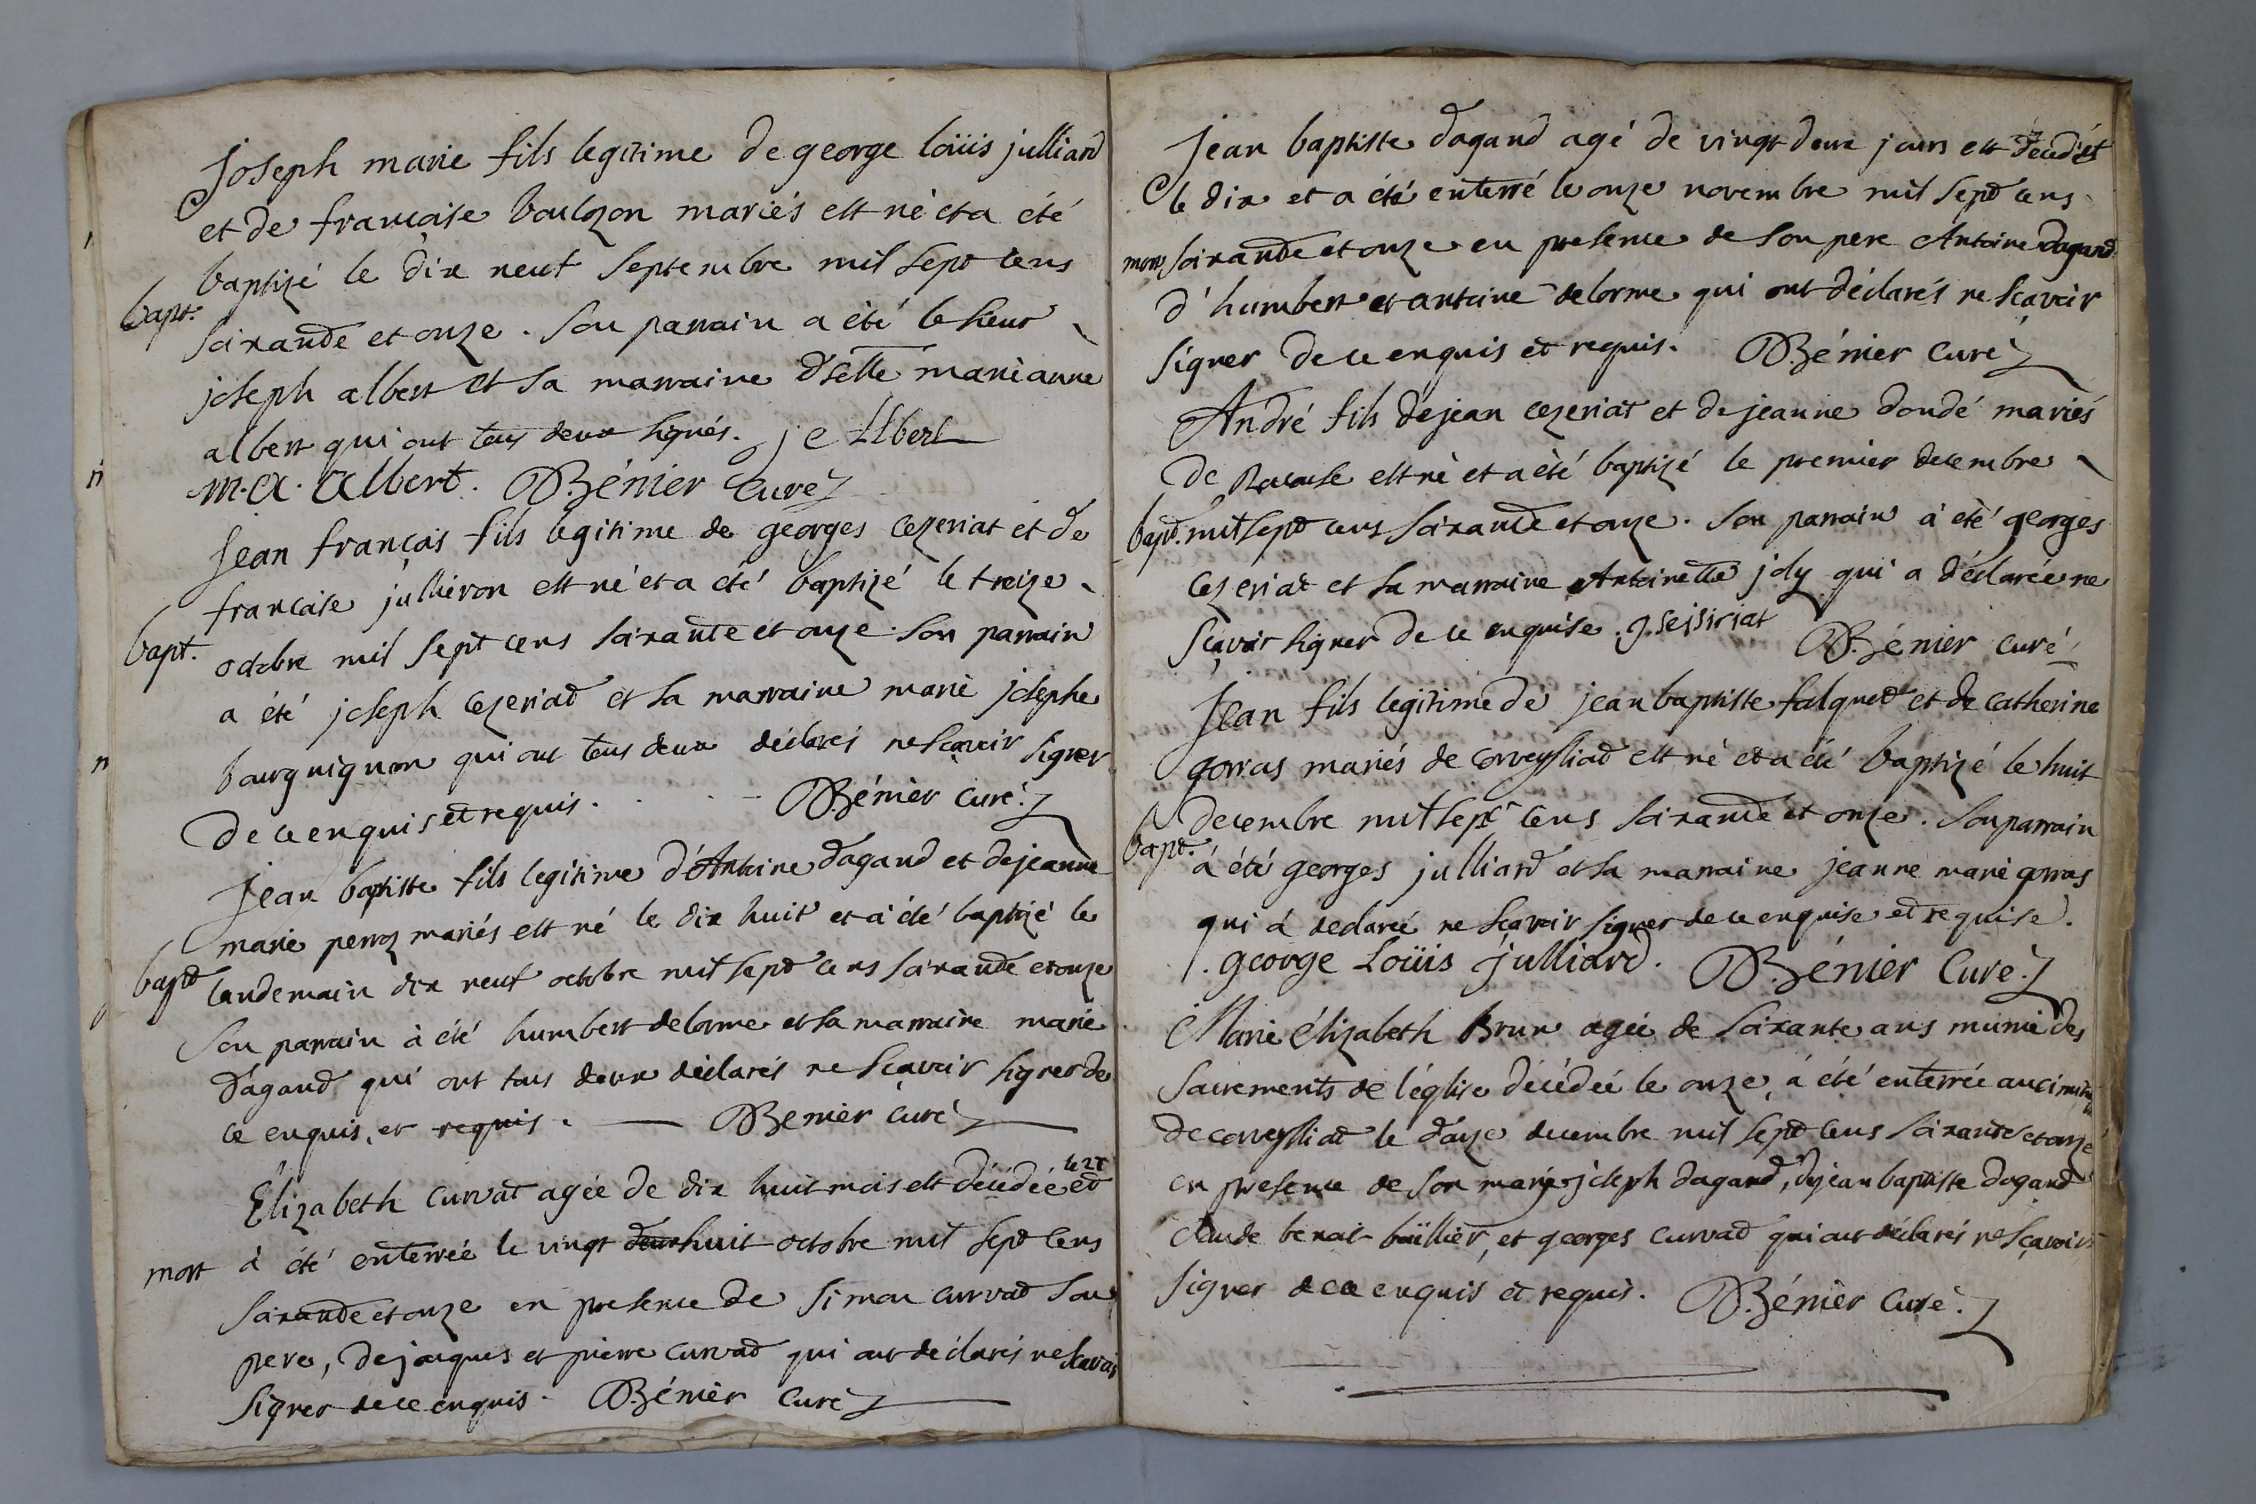 Joseph marie fils legitime de george loüis julliard
et de francaise boulozon mariés est né et a été
baptizé le dix neuf septembre mil sept cens
bapt.
soixante et onze. son parrain a été le sieur
joseph albert et sa marraine dselle marieanne
albert qui ont tous deux signés. j e Albert
m. a. albert. B. Bénier Curé
Jean françois fils legitime de georges cezeriat et de
francaise jullieron est né et a été baptizé le treize
bapt.
octobre mil sept cens soixante et onze. son parrain
a été joseph cezeriat et sa marraine marie josephe
bourguignon qui ont tous deux déclarés ne sçavoir signer
de ce enquis et requis. B. Bénier curé.
Jean baptiste fils legitime d'Antoine dagand et de jeanne
marie perroz mariés est né le dix huit et a été baptizé le
bapt
landemain dix neuf octobre mil sept cens soixante et onze
son parrain à été humbert delorme et sa marraine marie
dagand qui ont tous deux déclarés ne sçavoir signer de
ce enquis, et requis. B. Benier curé
Élizabeth curvat agée de dix huit mois est décédée le 27 et
mort à été enterrée le vingt deux huit octobre mil sept cens
soixante et onze en presence de simon curvat son
pere, de jacques et pierre curvat qui ont déclarés ne scavoir
signer de ce enquis. B. Bénier curé
Jean baptiste dagand agé de vingt deux jours est décédé
le dix et a été enterré le onze novembre mil sept cens
mort soixante et onze en presence de son pere Antoine dagand
d'humbert et antoine delorme qui ont déclarés ne sçavoir
signer de ce enquis et requis. B. Bénier curé
André fils de jean cezeriat et de jeanne dondé mariés
de est né et a été baptizé le premier decembre
bapt. mil sept cens soixante et onze. son parrain à été georges
cezeriat et sa marraine Antoinette joly qui a déclarée ne
sçavoir signer de ce enquise. J. sejsiriat B. Bénier curé
Jean fils legitime de jean baptiste falquet et de catherine
gorras mariés de corveyssiat est né et a été baptizé le huit
decembre mil sept cens soixante et onze. son parrain
bapt.
à été georges julliard et sa marraine jeanne marie gorras
qui à declaré ne sçavoir signer de ce enquise et requise.
. george Loüis julliard. B. Bénier Curé.
Marie Élizabeth Brun agée de soixante ans munie des
sacrements de l'église décédée le onze, à été enterrée au cimetiere
de corveyssiat le douze decembre mil sept cens soixante et onze
en presence de son marie joseph dagand, de jean baptiste dagand
claude benoit büillier, et georges curvat qui ont déclarés ne sçavoir
signer de ce enquis et requis. B. Bénier curé.